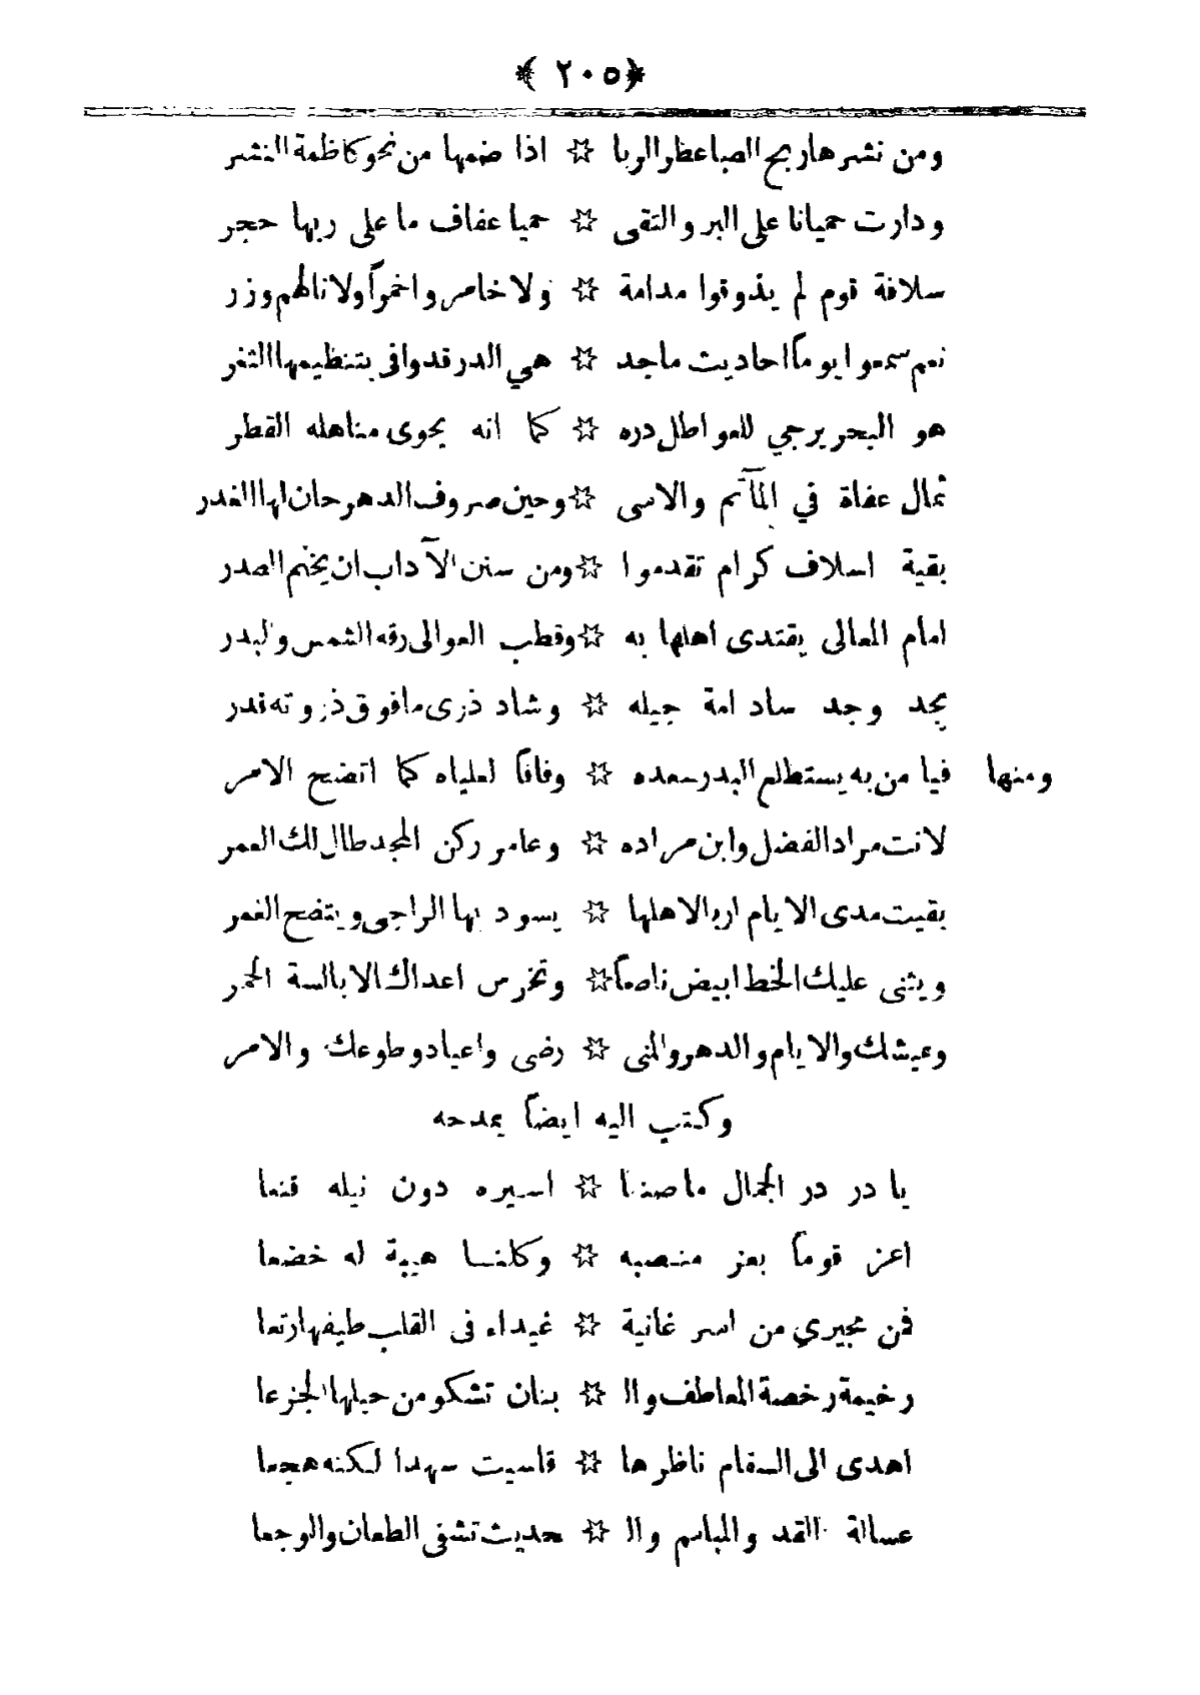 ﴿ ٢٠٥ ﴾
ومن نشرها ريح الصبا عطر الربا ☆ اذا ضمها من نحو كاظمة النشر
ودارت حميانا على البر والتقى ☆ حميا عفاف ما على ربها حجر
سلافة قوم لم يذوقوا مدامة ☆ ولا خامروا خمراً ولا نالهم وزر
نعم سمعوا يوماً احاديث ماجد ☆ هي الدر قد وافى بتنظيمها الثغر
هو البحر يرجي للعواطل دره ☆ كما انه يحوى مناهله القطر
ثمال عفاة في المآتم والاسى ☆ وحين صروف الدهر حان لها الغدر
بقية اسلاف كرام تقدموا ☆ ومن سنن الآداب ان يختم الصدر
امام المعالى يقتدى اهلها به ☆ وقطب العوالى رقه الشمس والبدر
بجد وجد ساد امة جيله ☆ وشاد ذرى ما فوق ذروته قدر
ومنها فيا من به يستطلع البدر سعده ☆ وفاقاً لعلياه كما اتضح الامر
لانت مراد الفضل وابن مراده ☆ وعامر ركن المجد طال لك العمر
بقيت مدى الايام اربالاهلها ☆ يسود بها الراجى ويتضح الغمر
ويثنى عليك الخط ابيض ناصعاً ☆ وتخرس اعداك الا بالسة الحمر
وعيشك والايام والدهر والمنى ☆ رضى واعياد وطوعك والامر
وكتب اليه ايضاً يمدحه
يا در در الجمال ما صنعا ☆ اسيره دون نيله قنعا
اعز قوماً بعز منصبه ☆ وكلنا هيبة له خضعا
فمن مجيري من اسر غانية ☆ غيداء فى القلب طيفها رتعا
رخيمة رخصة المعاطف وال ☆ بنان تشكو من حيلها الجزعا
اهدى الى السقام ناظرها ☆ قاسيت سهدا لكنه هجعا
عسالة القد والمباسم وال ☆ حديث تشفى الطعان والوجعا